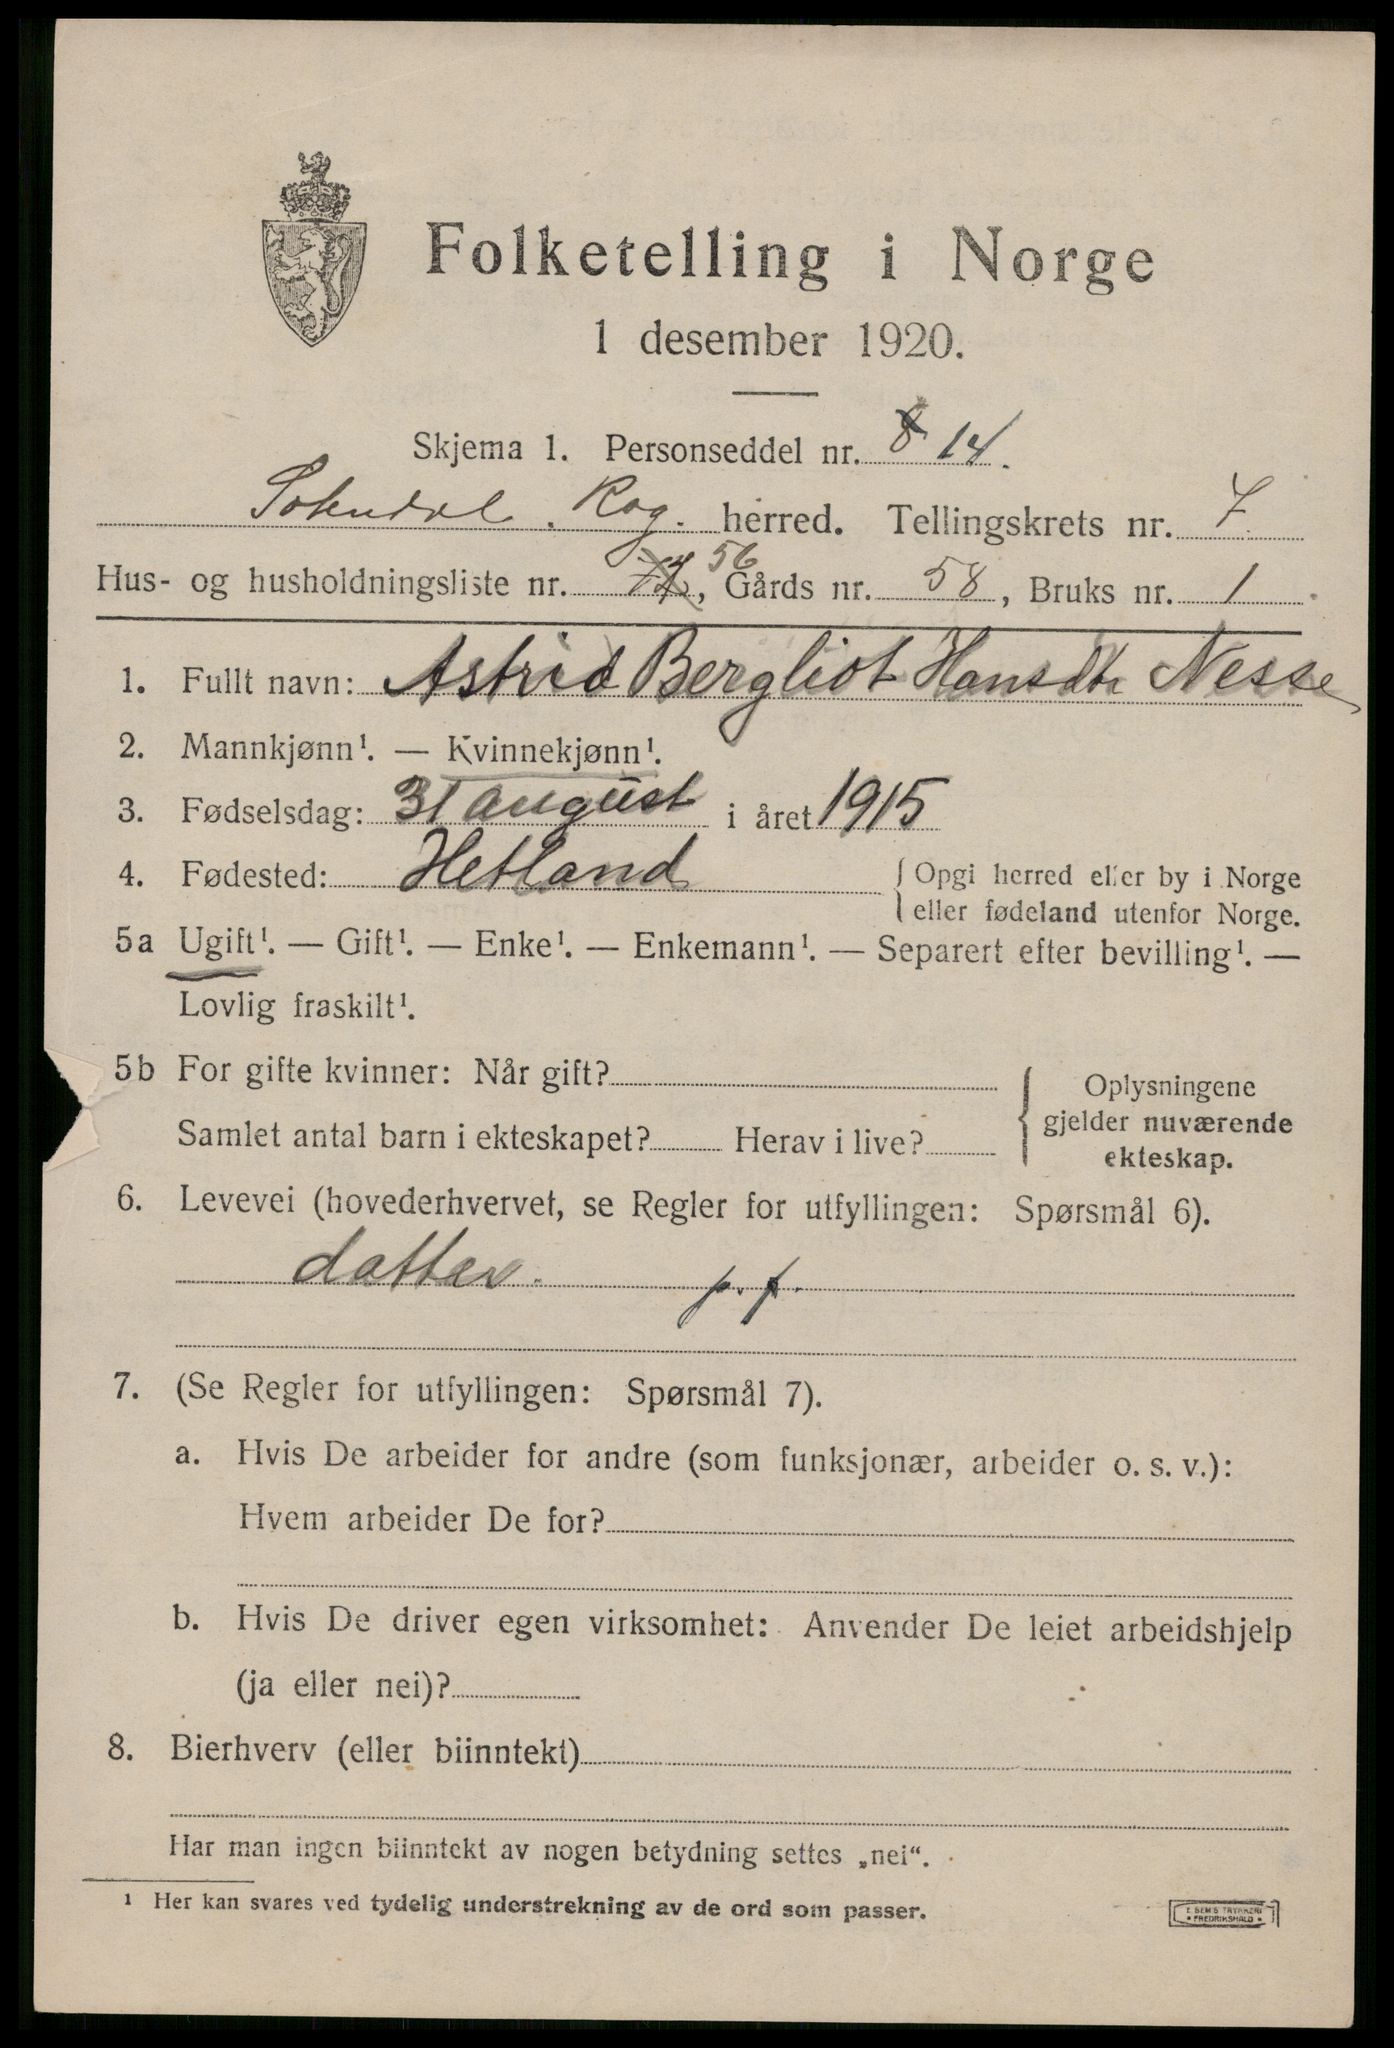 Folketelling i Norge
1 desember 1920.
Skjema 1. Personseddel nr. 8 14.
Sokndal. Rog. herred. Tellingskrets nr. 7.
56
Hus- og husholdningsliste nr. 77, Gårds nr. 58, Bruks nr. 1
1. Fullt navn: Astrid Bergliot Hansdtr Nesse
2. Mannkjønn¹. — Kvinnekjønn¹.
3. Fødselsdag: 31 august i året 1915
4. Fødested: Hetland { Opgi herred eller by i Norge
eller fødeland utenfor Norge.
5a Ugift¹. — Gift¹. — Enke¹. — Enkemann¹. — Separert efter bevilling¹. —
Lovlig fraskilt¹.
5b For gifte kvinner: Når gift?
Samlet antal barn i ekteskapet? Herav i live?
{ Oplysningene
gjelder nuværende
ekteskap.
6. Levevei (hovederhvervet, se Regler for utfyllingen: Spørsmål 6).
datter. p. f.
7. (Se Regler for utfyllingen: Spørsmål 7).
a. Hvis De arbeider for andre (som funksjonær, arbeider o. s. v.):
Hvem arbeider De for?
b. Hvis De driver egen virksomhet: Anvender De leiet arbeidshjelp
(ja eller nei)?
8. Bierhverv (eller biinntekt)
Har man ingen biinntekt av nogen betydning settes „nei“.
¹ Her kan svares ved tydelig understrekning av de ord som passer.
E. SEM'S TRYKKERI
• FREDRIKSHALD •